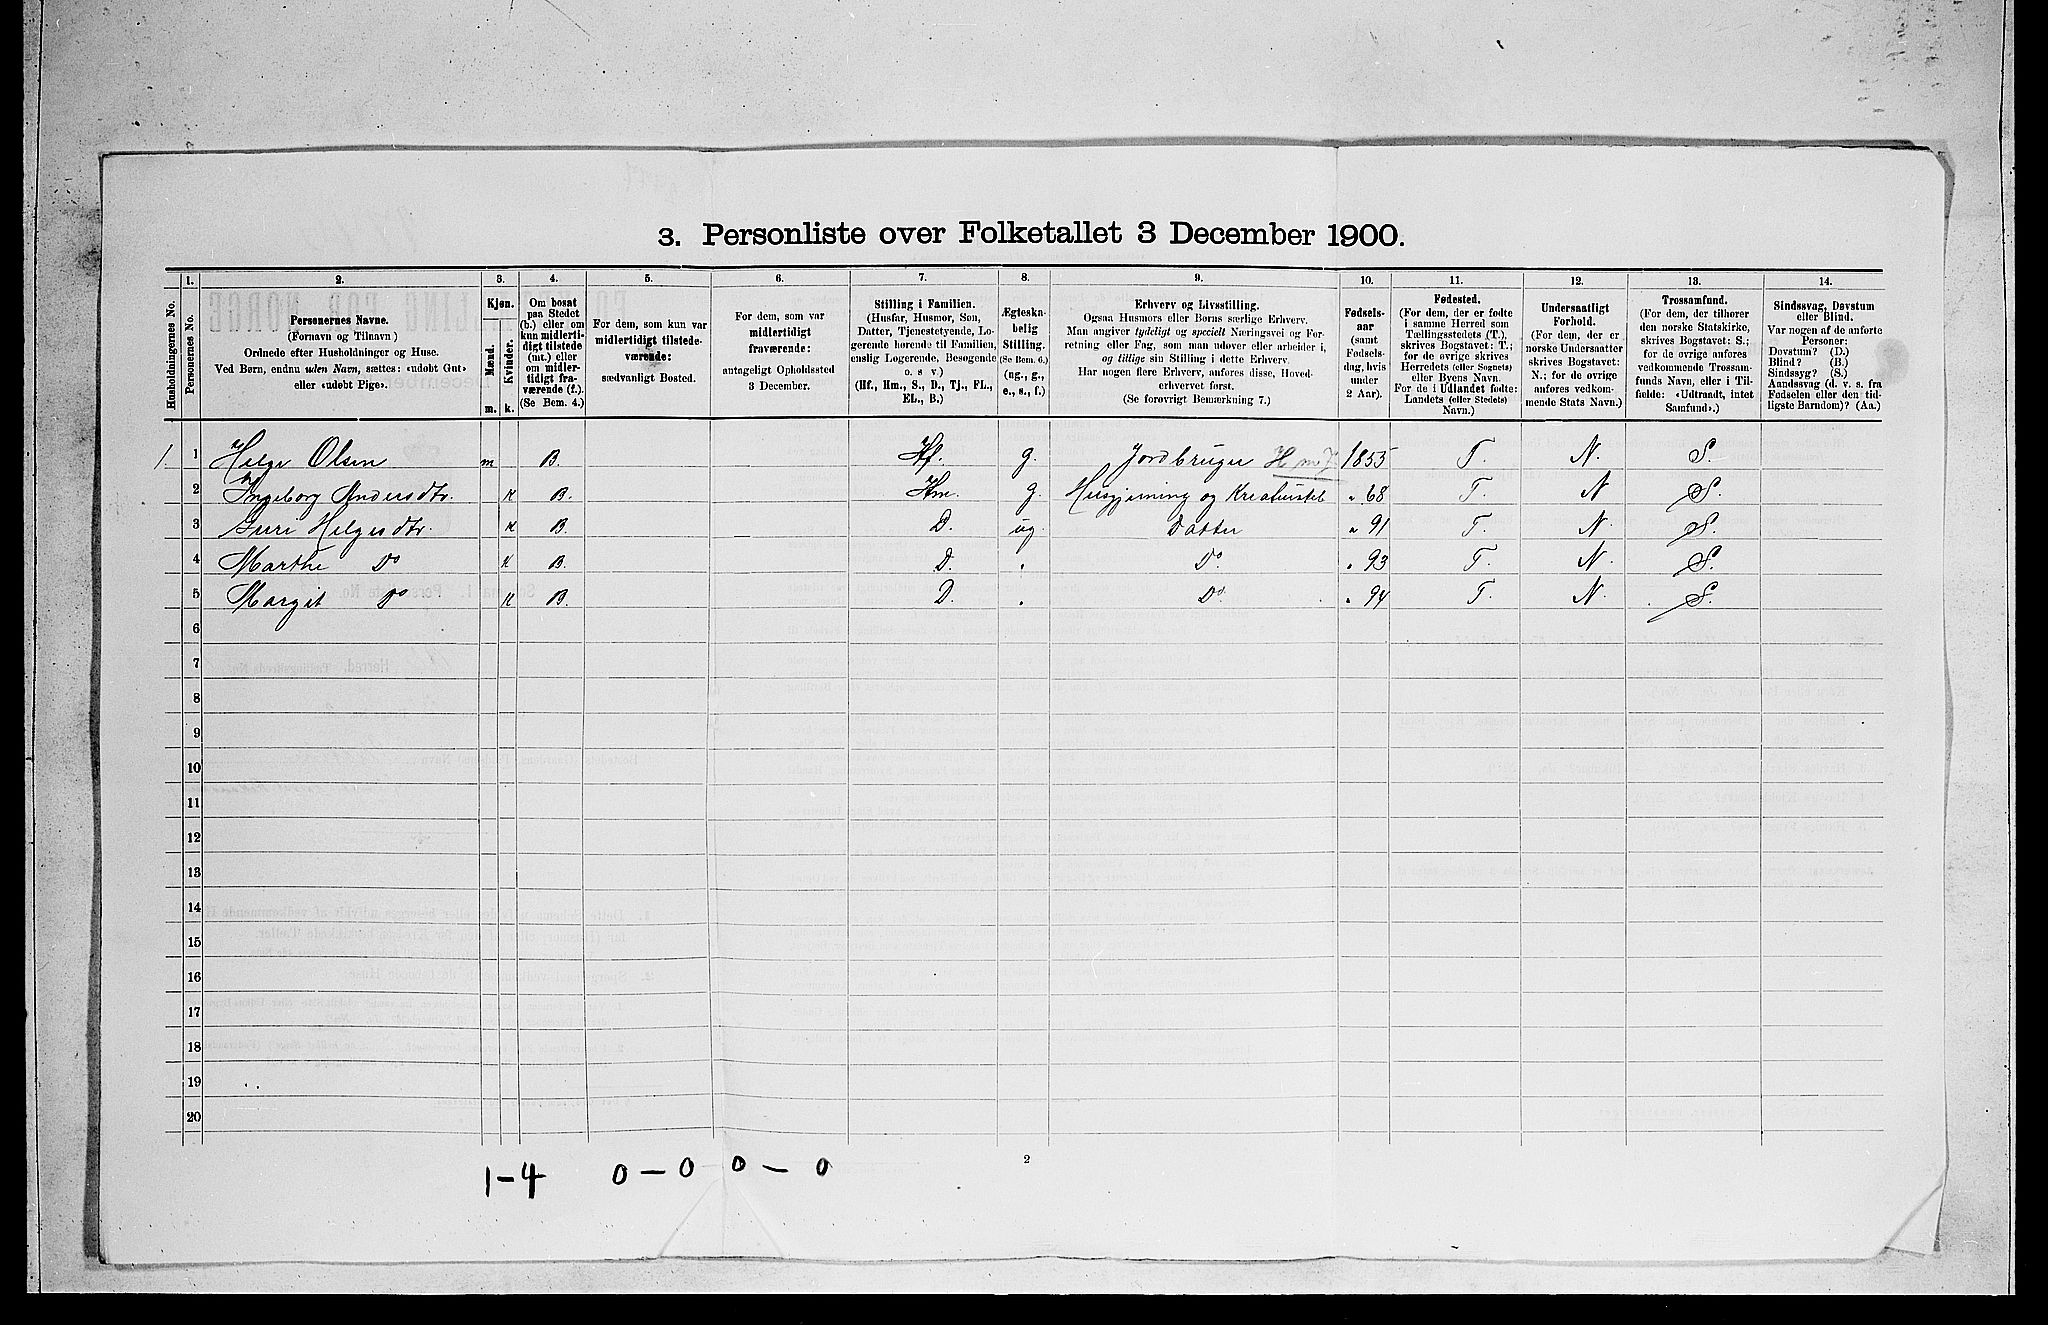 3. Personliste over Folketallet 3 December 1900.
1. 2. 3. 4. 5. 6. 7. 8. 9. 10. 11. 12. 13. 14.
Husholdningernes No.
Personernes No.
Personernes Navne.
(Fornavn og Tilnavn)
Ordnede efter Husholdninger og Huse.
Ved Børn, endnu uden Navn, sættes: «udøbt Gut»
eller «udøbt Pige».
Kjøn.
Mænd.
Kvinder.
m. k.
Om bosat
paa Stedet
(b.) eller om
kun midlerti-
digt tilstede
(mt.) eller
om midler-
tidigt fra-
værende (f.).
(Se Bem. 4.)
For dem, som kun var
midlertidigt tilstede-
værende:
sædvanligt Bosted.
For dem, som var
midlertidigt
fraværende:
antageligt Opholdssted
3 December.
Stilling i Familien.
(Husfar, Husmor, Søn,
Datter, Tjenestetyende, Lo-
gerende hørende til Familien,
enslig Logerende, Besøgende
o. s v.)
(Hf., Hm., S., D., Tj., FL.,
EL., B.)
Ægteska-
belig
Stilling.
(Se Bem. 6.)
(ug., g.,
e., s., f.)
Erhverv og Livsstilling.
Ogsaa Husmors eller Børns særlige Erhverv.
Man angiver tydeligt og specielt Næringsvei og For-
retning eller Fag, som man udøver eller arbeider i,
og tillige sin Stilling i dette Erhverv.
Har nogen flere Erhverv, anføres disse, Hoved-
erhvervet først.
(Se forøvrigt Bemærkning 7.)
Fødsels-
aar
(samt
Fødsels-
dag, hvis
under
2 Aar).
Fødested.
(For dem, der er fødte
i samme Herred som
Tællingsstedets (T.),
skrives Bogstavet: T.;
for de øvrige skrives
Herredets (eller Sognets)
eller Byens Navn.
For de i Udlandet fødte:
Landets (eller Stedets)
Navn.)
Undersaatligt
Forhold.
(For dem, der er
norske Undersaatter
skrives Bogstavet:
N.; for de øvrige
anføres vedkom-
mende Stats Navn.)
Trossamfund.
(For dem, der tilhører
den norske Statskirke,
skrives Bogstavet: S.;
for de øvrige anføres
vedkommende Trossam-
funds Navn, eller i Til-
fælde: «Udtraadt, intet
Samfund».)
Sindssvag, Døvstum
eller Blind.
Var nogen af de anførte
Personer:
Døvstum? (D.)
Blind? (B.)
Sindssyg? (S.)
Aandssvag (d. v. s. fra
Fødselen eller den tid-
ligste Barndom)? (Aa.)
1. 1 Helge Olsen m B. Hf. g. Jordbruger 1855 T. N. S.
2 Ingeborg Andersdtr. k B. Hm. g. Husgjerning og Kreaturstel " 68 T. N S.
3 Guri Helgesdtr. k B. D. ug. Datter " 91 T. N. S.
4 Marthe Do k B. D. " Do. " 93 T. N. S.
5 Margit Do k B. D. " Do. " 94 T. N. S.
6
7
8
9
10
11
12
13
14
15
16
17
18
19
20
1-4 0-0 0-0
2